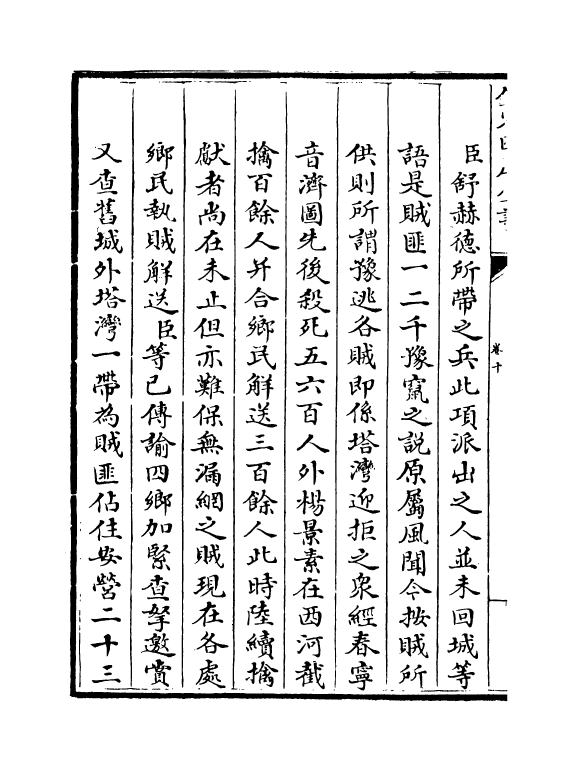 卷十
臣舒赫德所帶之兵此項派出之人並未回城等
語是賊匪一二千豫竄之説原屬風聞今按賊所
供則所謂豫逃各賊即係塔灣迎拒之衆經春寧
音濟圖先後殺死五六百人外楊景素在西河截
擒百餘人并合鄉民解送三百餘人此時陸續擒
獻者尚在未止但亦難保無漏網之賊現在各處
鄉民執賊解送臣等已傳諭四鄉加緊查拏邀賞
又查舊城外塔灣一帶為賊匪佔住安營二十三